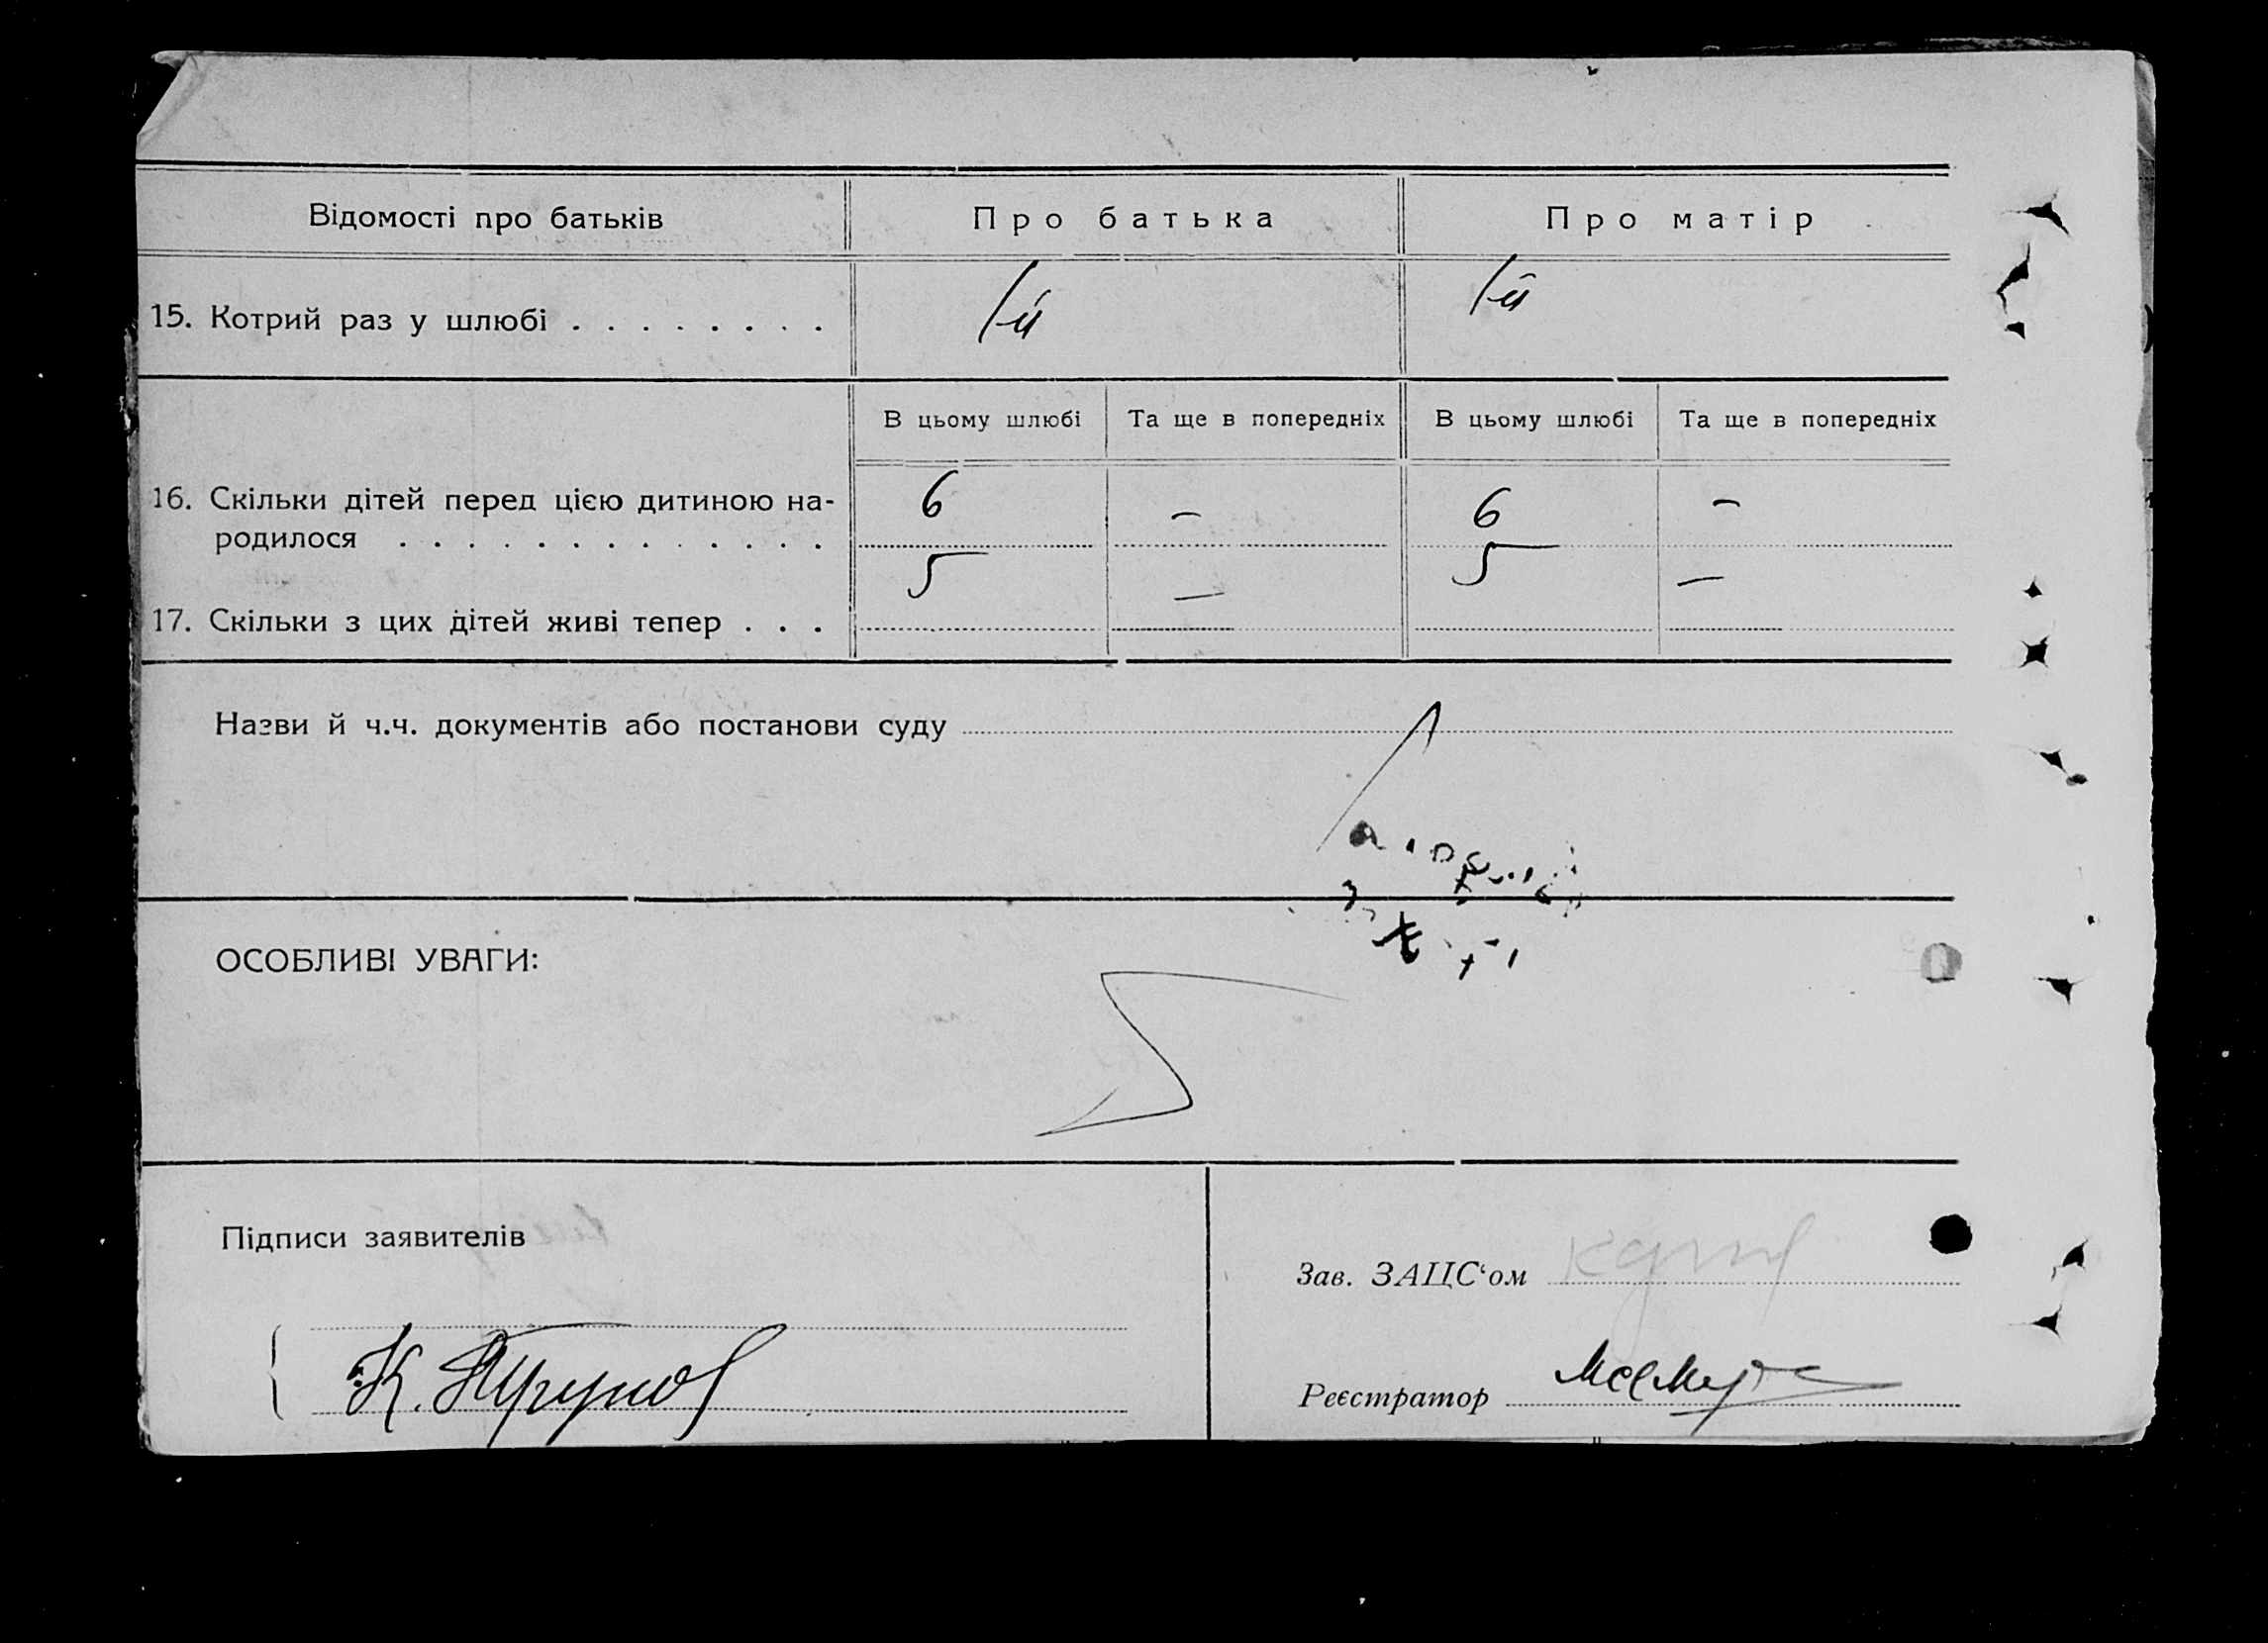 Відомості про батьків Про батька Про матір
15. Котрий раз у шлюбі . . . . . . . . 1-й 1-й
В цьому шлюбі Та ще в попередніх В цьому шлюбі Та ще в попередніх
16. Скільки дітей перед цією дитиною на- 6 – 6 –
родилося . . . . . . . . . . . . .
17. Скільки з цих дітей живі тепер . . . 5 — 5 —
Назви й ч.ч. документів або постанови суду
ОСОБЛИВІ УВАГИ:
Підписи заявителів
Зав. ЗАЦС‘ом
К.
Реєстратор